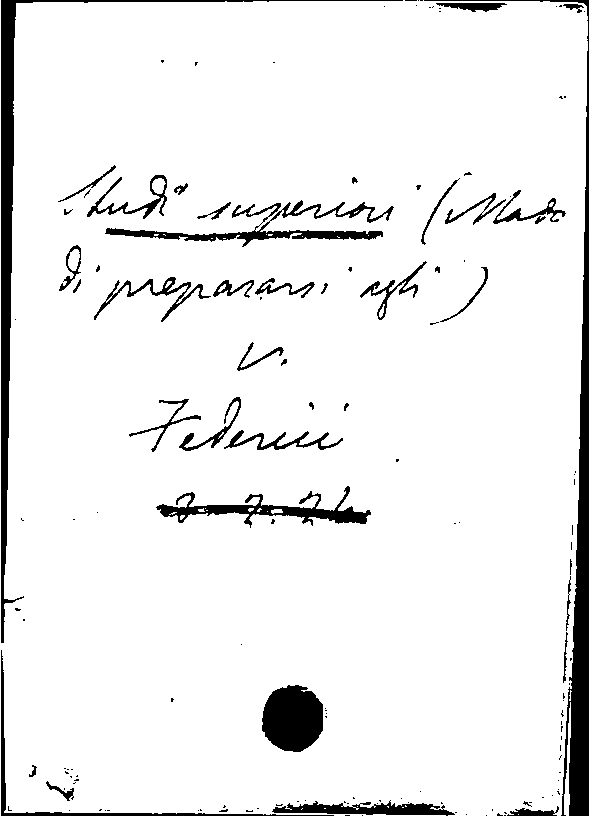 Studi superiori (Modo
di prepararsi agli)
v.
Federici